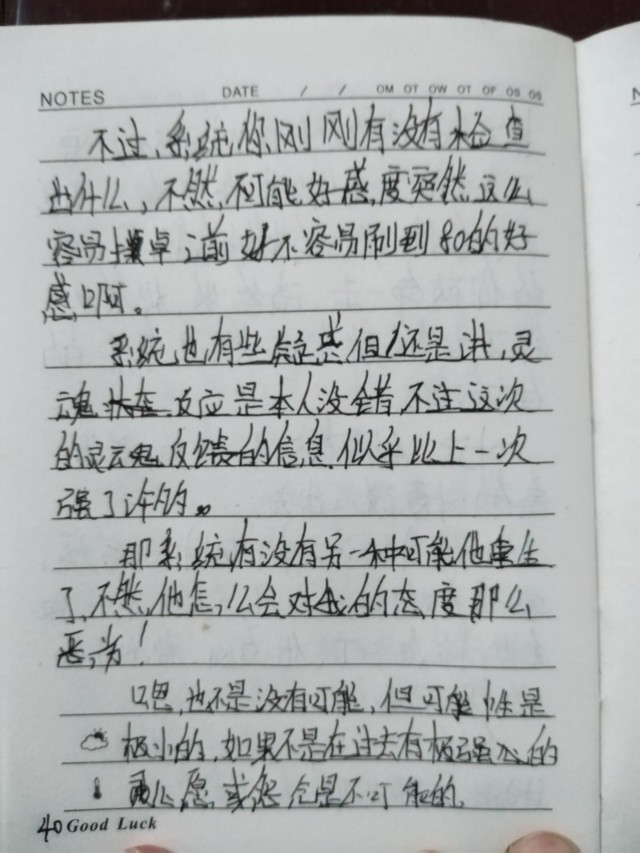 NOTES DATE / / OM OT OW OT OF OS OS
不过,系统你刚刚有没有检查
出什么,不然,不可能好感度突然这么
容易掉,之前好不容易刷到80的好
感啊。
系统也有些疑惑但还是讲,灵
魂状态反应是本人没错,不过这次
的灵魂反馈的信息,似乎比上一次
强了许的。
那系统有没有另一种可能他重生
了,不然,他怎么会对我的态度那么
恶劣!
嗯,也不是没有可能,但可能性是
极小的,如果不是在过去有极强烈的
愿或怨念是不可能的,
40 Good Luck